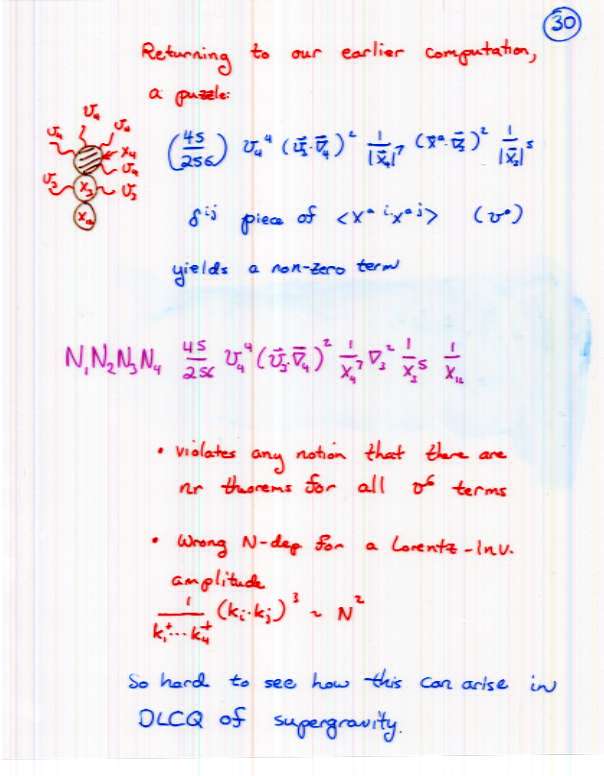 30
Returning to our earlier computation,
a puzzle:
v₄ v₄ v₄ x₄ v₄
v₃ x₃ v₃
xₐ
(45/256) v₄⁴ (v⃗₃·∇⃗₄)² 1/|x⃗₄|⁷ (x⃗ᵃ·∇⃗₃)² 1/|x⃗₃|⁵
δⁱʲ piece of <xᵃ ⁱ xᵃ ʲ> (v⁰)
yields a non-zero term
N₁N₂N₃N₄ 45/256 v₄⁴ (v⃗₃·∇⃗₄)² 1/x₄⁷ ∇₃² 1/x₃⁵ 1/x₁₂
• violates any notion that there are
nr theorems for all v⁶ terms
• Wrong N-dep for a Lorentz-Inv.
amplitude
1/(k₁⁺···k₄⁺) (kᵢ·kⱼ)³ ~ N²
So hard to see how this can arise in
DLCQ of supergravity.